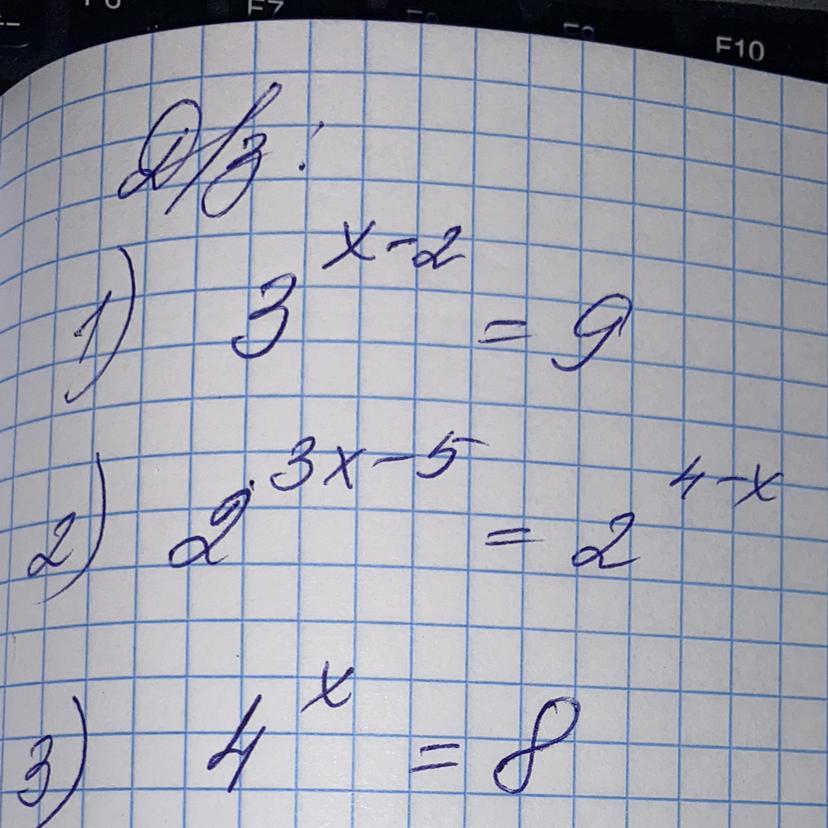 F7
F10
Д/з:
1) 3^{x-2} = 9
2) 2^{3x-5} = 2^{4-x}
3) 4^x = 8